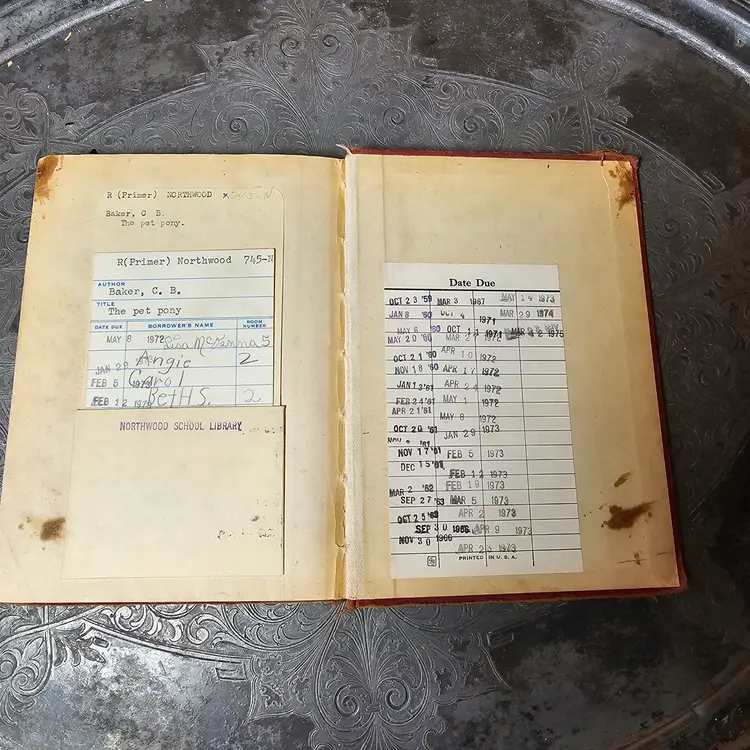 R (Primer) NORTHWOOD x745-N
Baker, C. B.
The pet pony.
R(Primer) Northwood 745-N
AUTHOR
Baker, C. B.
TITLE
The pet pony
DATE DUE BORROWER'S NAME ROOM NUMBER
MAY 8 1972 Lisa McKenna 5
JAN 29 Angie 2
FEB 5 1973 Carol
FEB 12 1973 Beth S. 2
NORTHWOOD SCHOOL LIBRARY
Date Due
OCT 23 '59 MAR 3 1967 MAY 14 1973
JAN 8 '60 OCT 4 1971 MAR 29 1974
MAY 6 '60 OCT 11 1971
MAY 20 '60 MAR 27 1972 1975
OCT 21 '60 APR 10 1972
NOV 18 '60 APR 17 1972
JAN 13 '61 APR 24 1972
FEB 24 '61 MAY 1 1972
APR 21 '61 MAY 8 1972
OCT 20 '61 JAN 29 1973
NOV '61
NOV 17 '61 FEB 5 1973
DEC 15 '61 FEB 12 1973
MAR 2 '62 FEB 19 1973
SEP 27 '63 MAR 5 1973
OCT 25 '63 APR 2 1973
SEP 30 1966 APR 9 1973
NOV 30 1966
APR 23 1973
PRINTED IN U. S. A.